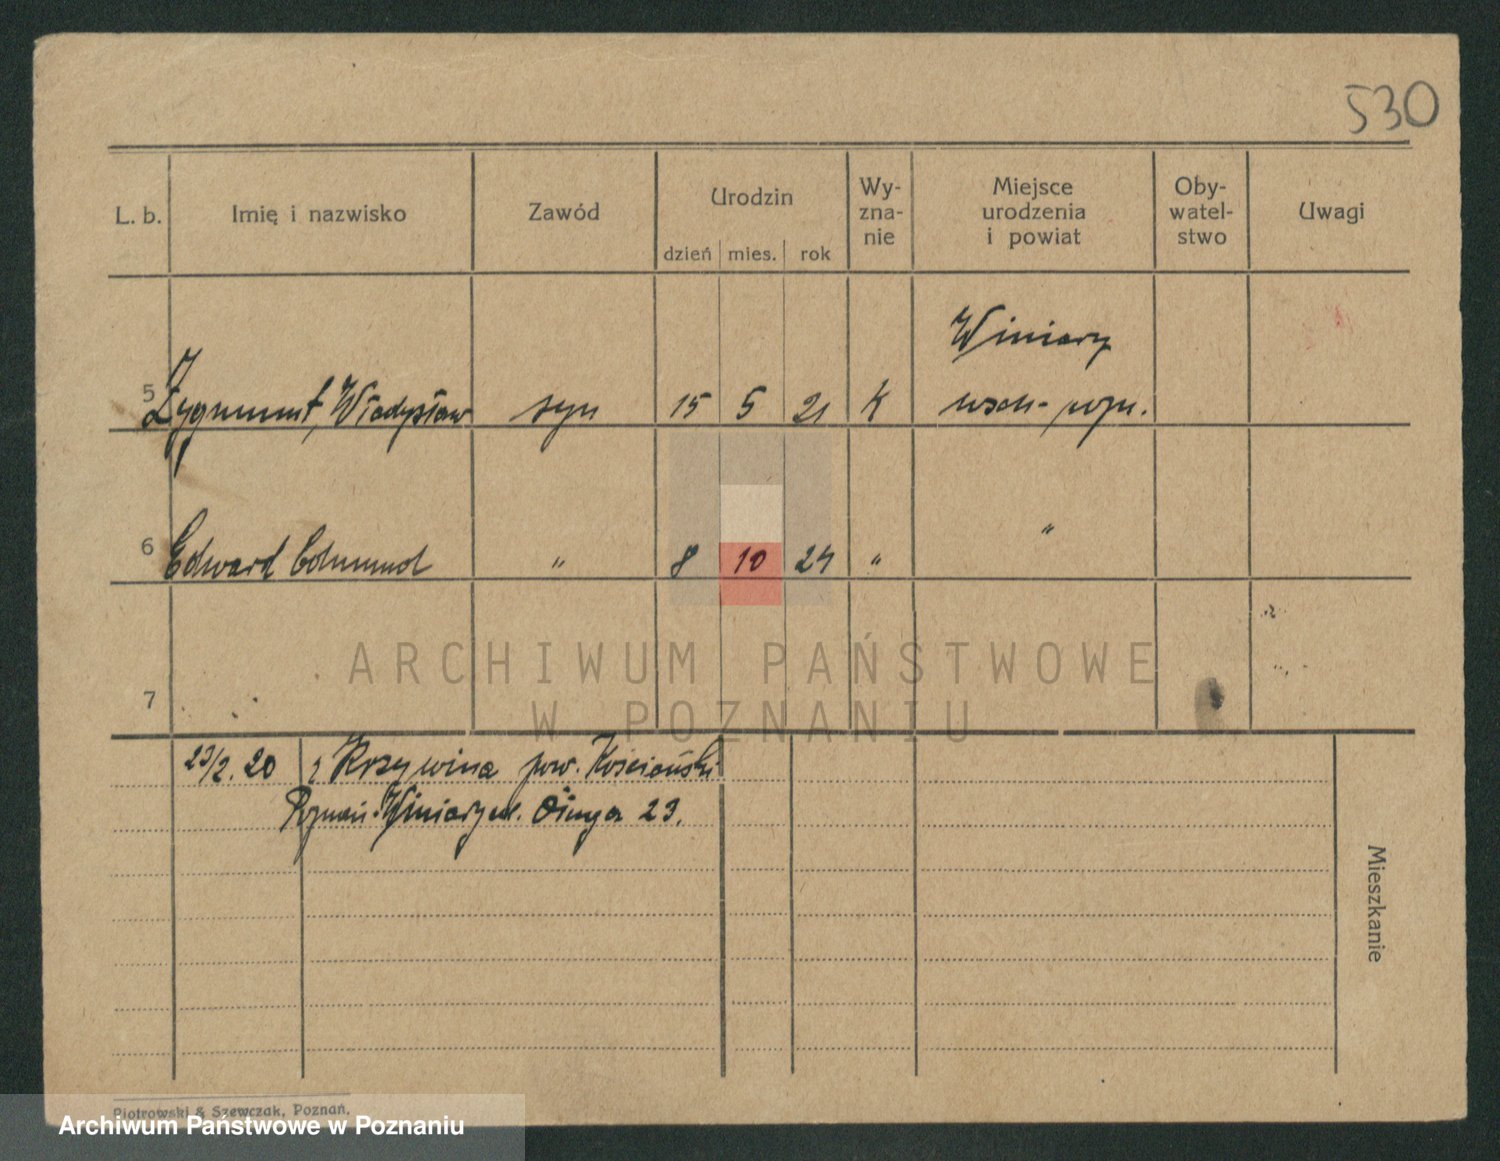 530
L. b. Imię i nazwisko Zawód Urodzin Wy-zna-nie Miejsce urodzenia i powiat Oby-watel-stwo Uwagi
dzień mies. rok
Winiary
5 Zygmunt, Władysław syn 15 5 21 K wsch- pozn.
6 Edward Edmund " 8 10 24 " "
ARCHIWUM PAŃSTWOWE
W POZNANIU
7
23/2. 20 z Krzywina pow. Kościański
Poznań-Winiary ul. 23.
Mieszkanie
Piotrowski & Szewczak, Poznań.
Archiwum Państwowe w Poznaniu